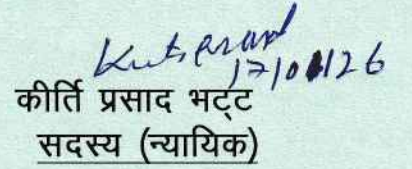 17/01/26
कीर्ति प्रसाद भट्ट
सदस्य (न्यायिक)